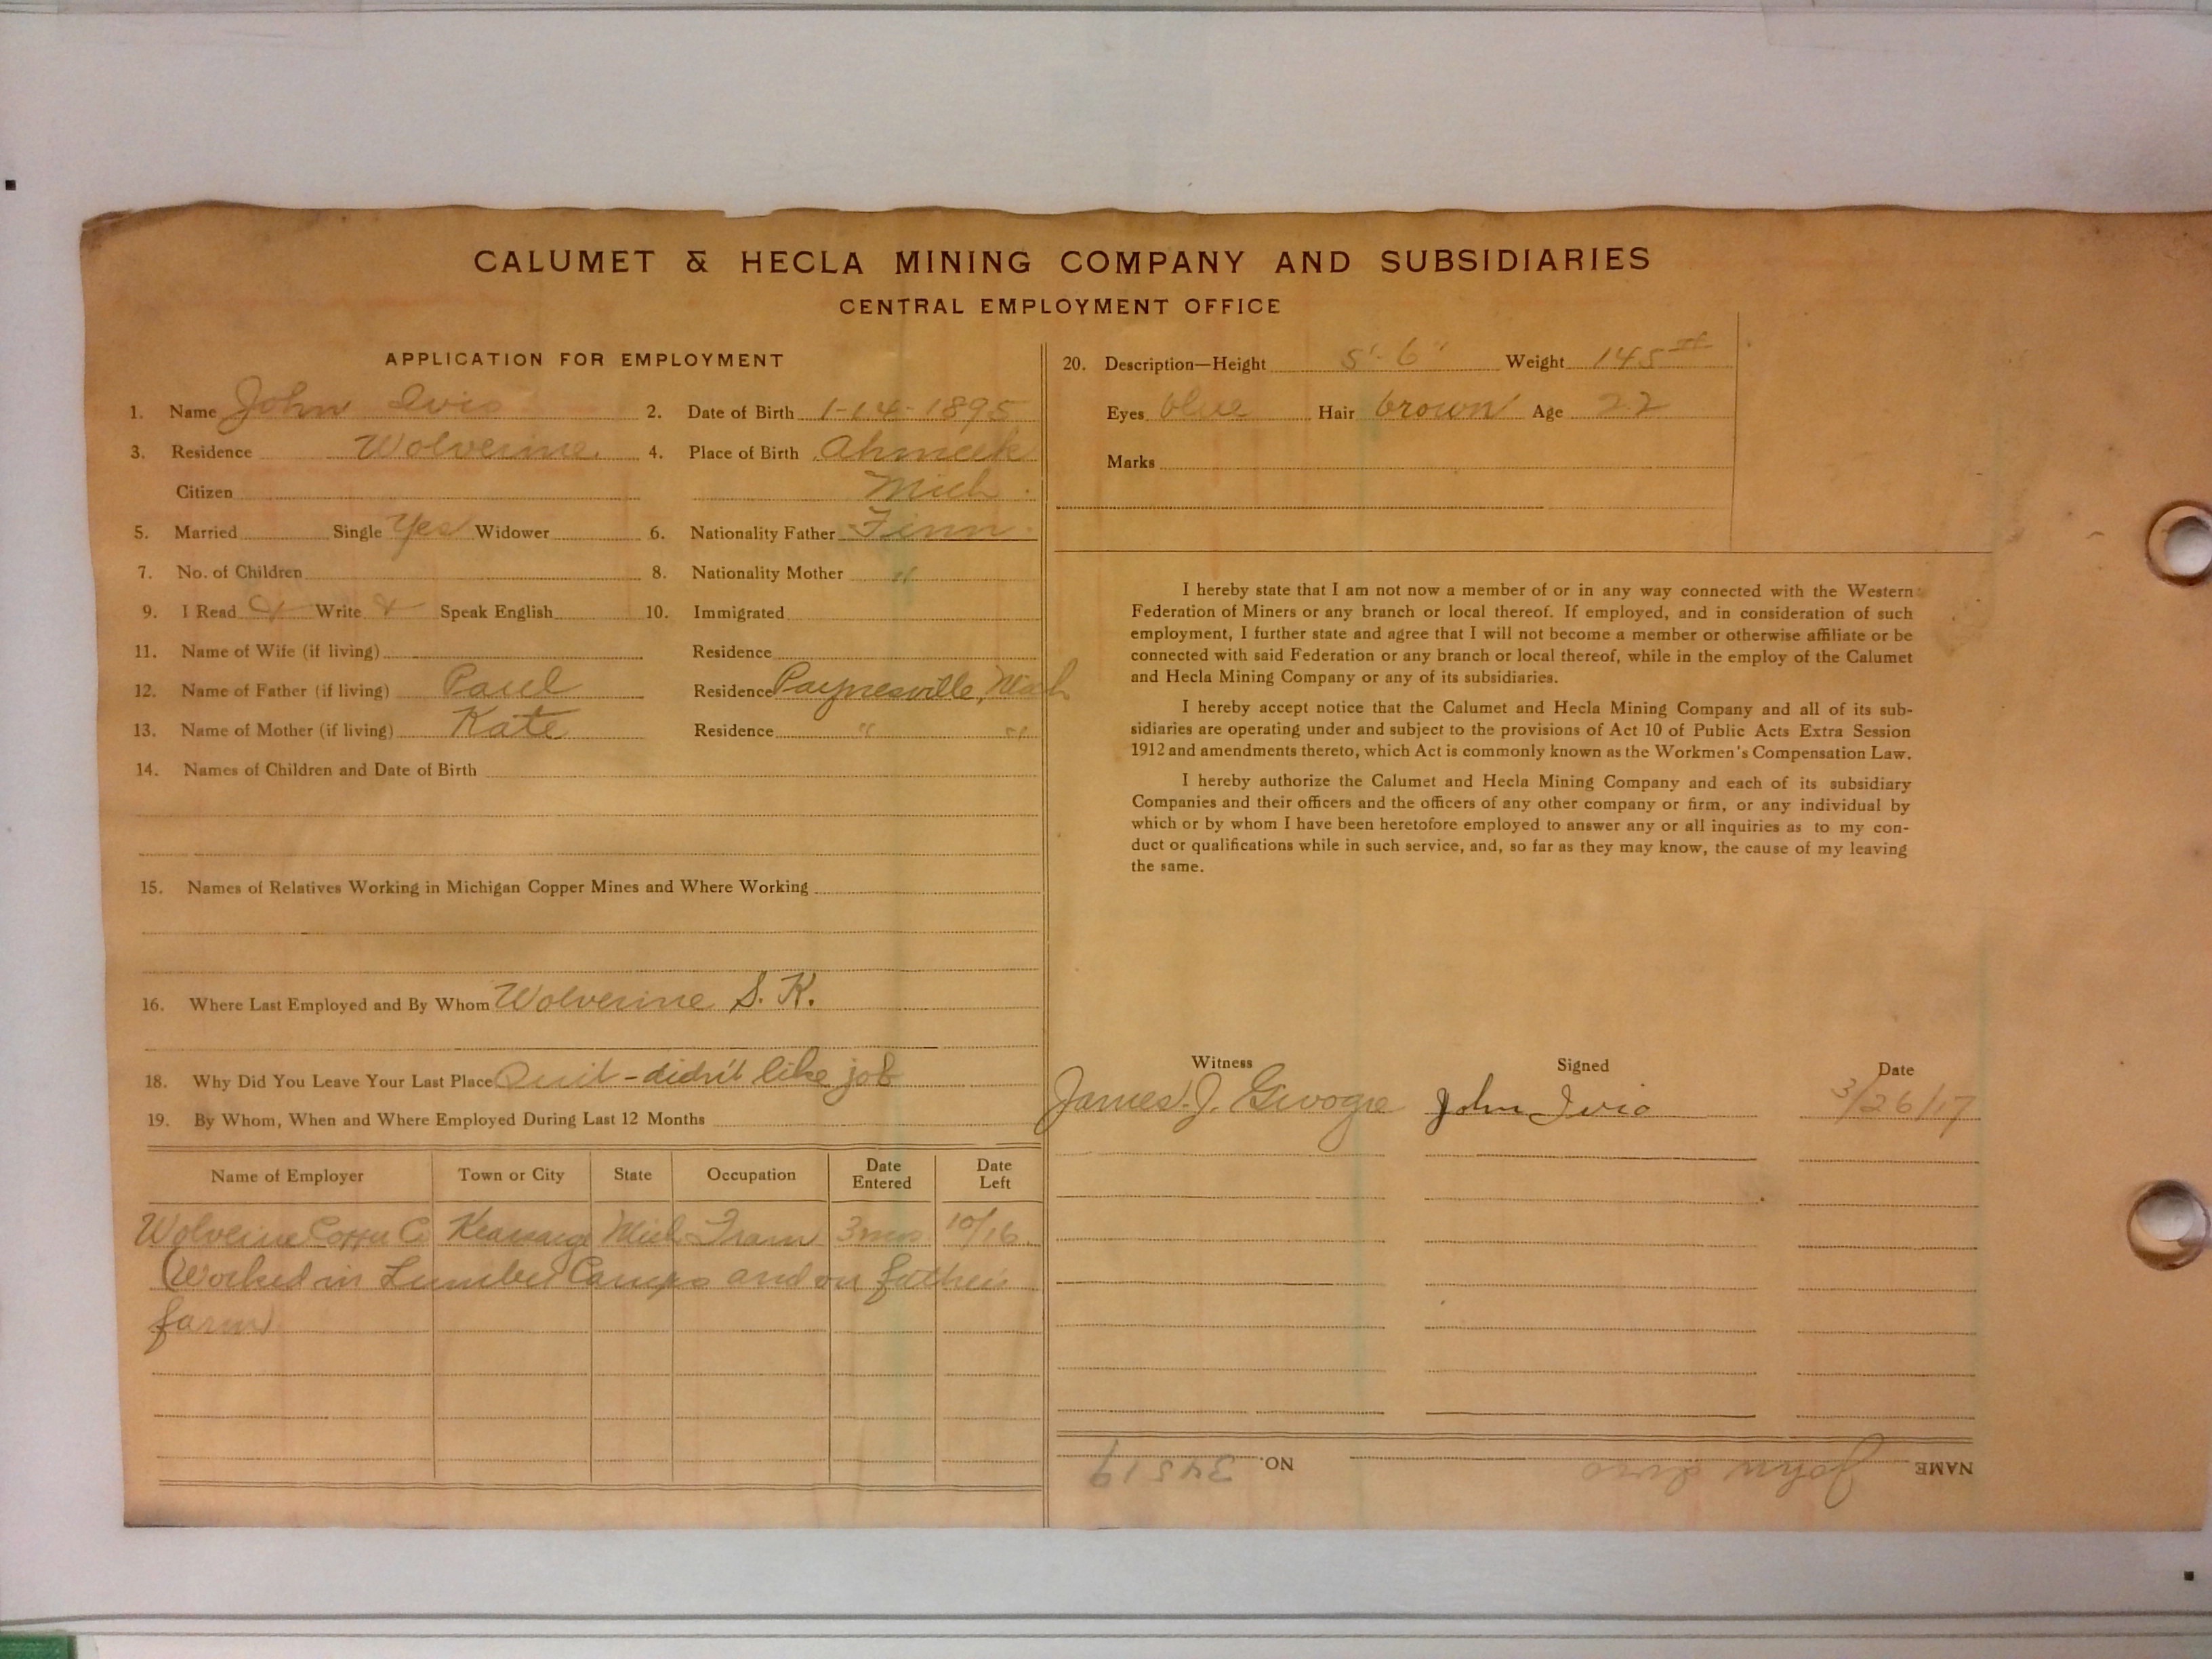 CALUMET & HECLA MINING COMPANY AND SUBSIDIARIES
CENTRAL EMPLOYMENT OFFICE
APPLICATION FOR EMPLOYMENT
1. Name John Ivio 2. Date of Birth 1-14-1895
3. Residence Wolverine. 4. Place of Birth Ahmeek
Citizen Mich.
5. Married Single Yes Widower 6. Nationality Father Finn.
7. No. of Children 8. Nationality Mother "
9. I Read Write Speak English 10. Immigrated
11. Name of Wife (if living) Residence
12. Name of Father (if living) Paul Residence Paynesville, Mich
13. Name of Mother (if living) Kate Residence " "
14. Names of Children and Date of Birth
15. Names of Relatives Working in Michigan Copper Mines and Where Working
16. Where Last Employed and By Whom Wolverine S. K.
18. Why Did You Leave Your Last Place Quit - didn't like job
19. By Whom, When and Where Employed During Last 12 Months
Name of Employer Town or City State Occupation Date Entered Date Left
Wolverine Copper Co Kearsarge Mich Tram 3 mos 10/16
(Worked in Lumber Camps and on fathers
farm)
20. Description—Height 5'-6" Weight 145 #
Eyes blue Hair brown Age 22
Marks
I hereby state that I am not now a member of or in any way connected with the Western
Federation of Miners or any branch or local thereof. If employed, and in consideration of such
employment, I further state and agree that I will not become a member or otherwise affiliate or be
connected with said Federation or any branch or local thereof, while in the employ of the Calumet
and Hecla Mining Company or any of its subsidiaries.
I hereby accept notice that the Calumet and Hecla Mining Company and all of its sub-
sidiaries are operating under and subject to the provisions of Act 10 of Public Acts Extra Session
1912 and amendments thereto, which Act is commonly known as the Workmen's Compensation Law.
I hereby authorize the Calumet and Hecla Mining Company and each of its subsidiary
Companies and their officers and the officers of any other company or firm, or any individual by
which or by whom I have been heretofore employed to answer any or all inquiries as to my con-
duct or qualifications while in such service, and, so far as they may know, the cause of my leaving
the same.
Witness Signed Date
James J. John Ivio 3/26/17
NAME John Ivio NO. 34519